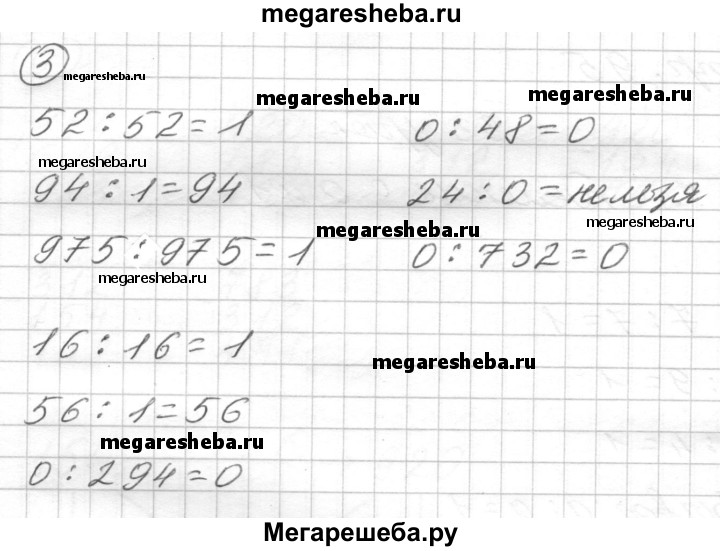 megaresheba.ru
3
megaresheba.ru
megaresheba.ru
megaresheba.ru
52 : 52 = 1
0 : 48 = 0
megaresheba.ru
94 : 1 = 94
24 : 0 = нельзя
megaresheba.ru
megaresheba.ru
975 : 975 = 1
0 : 732 = 0
megaresheba.ru
16 : 16 = 1
megaresheba.ru
56 : 1 = 56
megaresheba.ru
0 : 294 = 0
Мегарешеба.ру